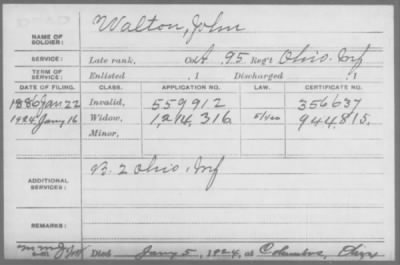 NAME OF SOLDIER: Walton, John
SERVICE: Late rank, Co. A 95 Reg't Ohio Inf
TERM OF SERVICE: Enlisted , 1 Discharged , 1
DATE OF FILING. CLASS. APPLICATION NO. LAW. CERTIFICATE NO.
1886 Jan 22 Invalid, 559912 356637
1924 Jany 16 Widow, 1,214,316 944,815.
Minor,
ADDITIONAL SERVICES: B. 2 Ohio. Inf
REMARKS:
Died Jany 5, 1924, at Columbus, Ohio